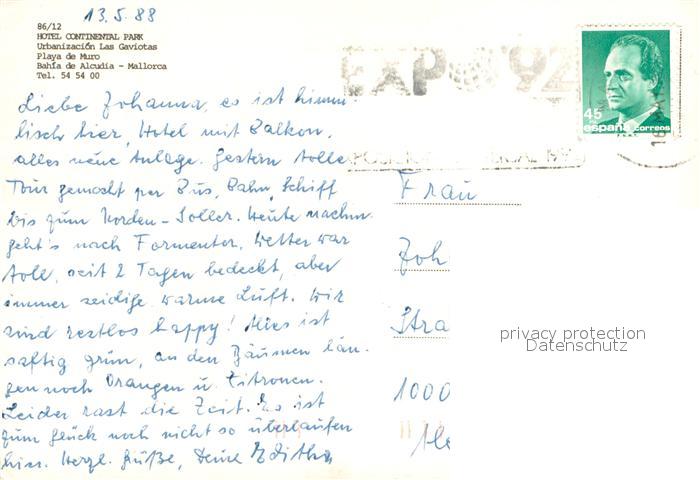 13.5.88
86/12
HOTEL CONTINENTAL PARK
Urbanización Las Gaviotas
Playa de Muro
Bahía de Alcudia - Mallorca
Tel. 54 54 00
EXPO '92
45
españa correos
Liebe Johanna, es ist himm
lisch hier, Hotel mit Balkon,
alles neue Anlage. Gestern tolle
Tour gemacht per Bus, Bahn, Schiff
bis zum Norden - Soller. Heute nachm
geht's nach Formentor. Wetter war
toll, seit 2 Tagen bedeckt, aber
immer seidige warme Luft. Wir
sind restlos happy! Alles ist
saftig grün, an den Bäumen hän-
gen noch Orangen u. Zitronen.
Leider rast die Zeit. Es ist
zum Glück noch nicht so überlaufen
hier. Herzl. Grüße, Deine Editha
Frau
Joh
Stra
1000
privacy protection
Datenschutz